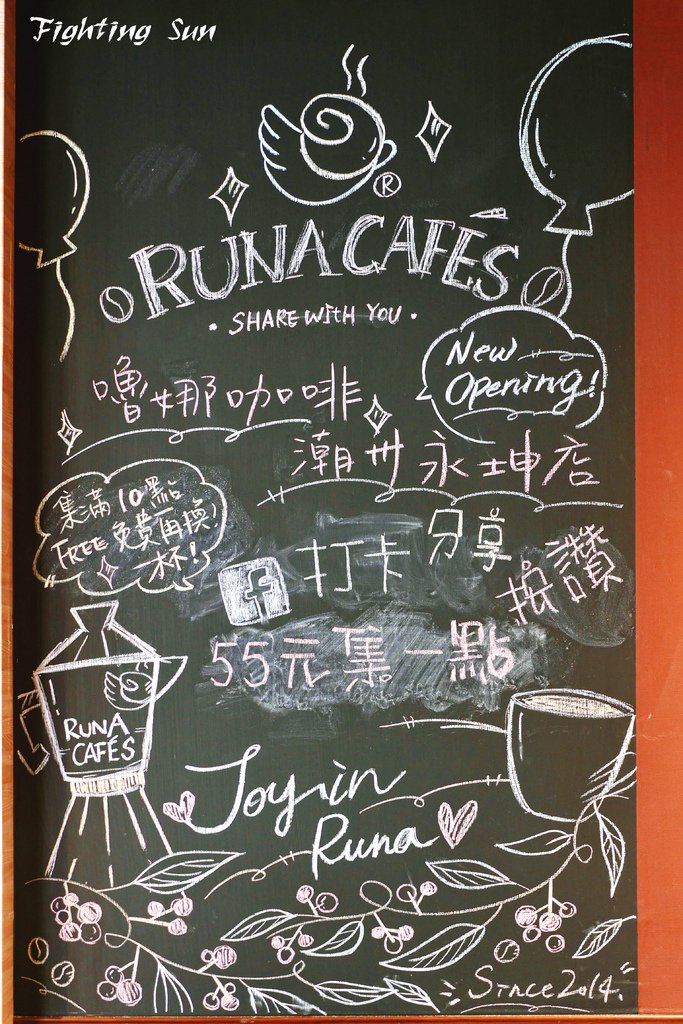 Fighting Sun
®
RUNA CAFÉS
· SHARE WITH YOU ·
New
Opening!
嚕娜咖啡
潮州永坤店
集滿10點
FREE免費再換1
杯!
f 打卡 分享 按讚
55元集一點
RUNA
CAFÉS
Joy in
Runa
Since 2014